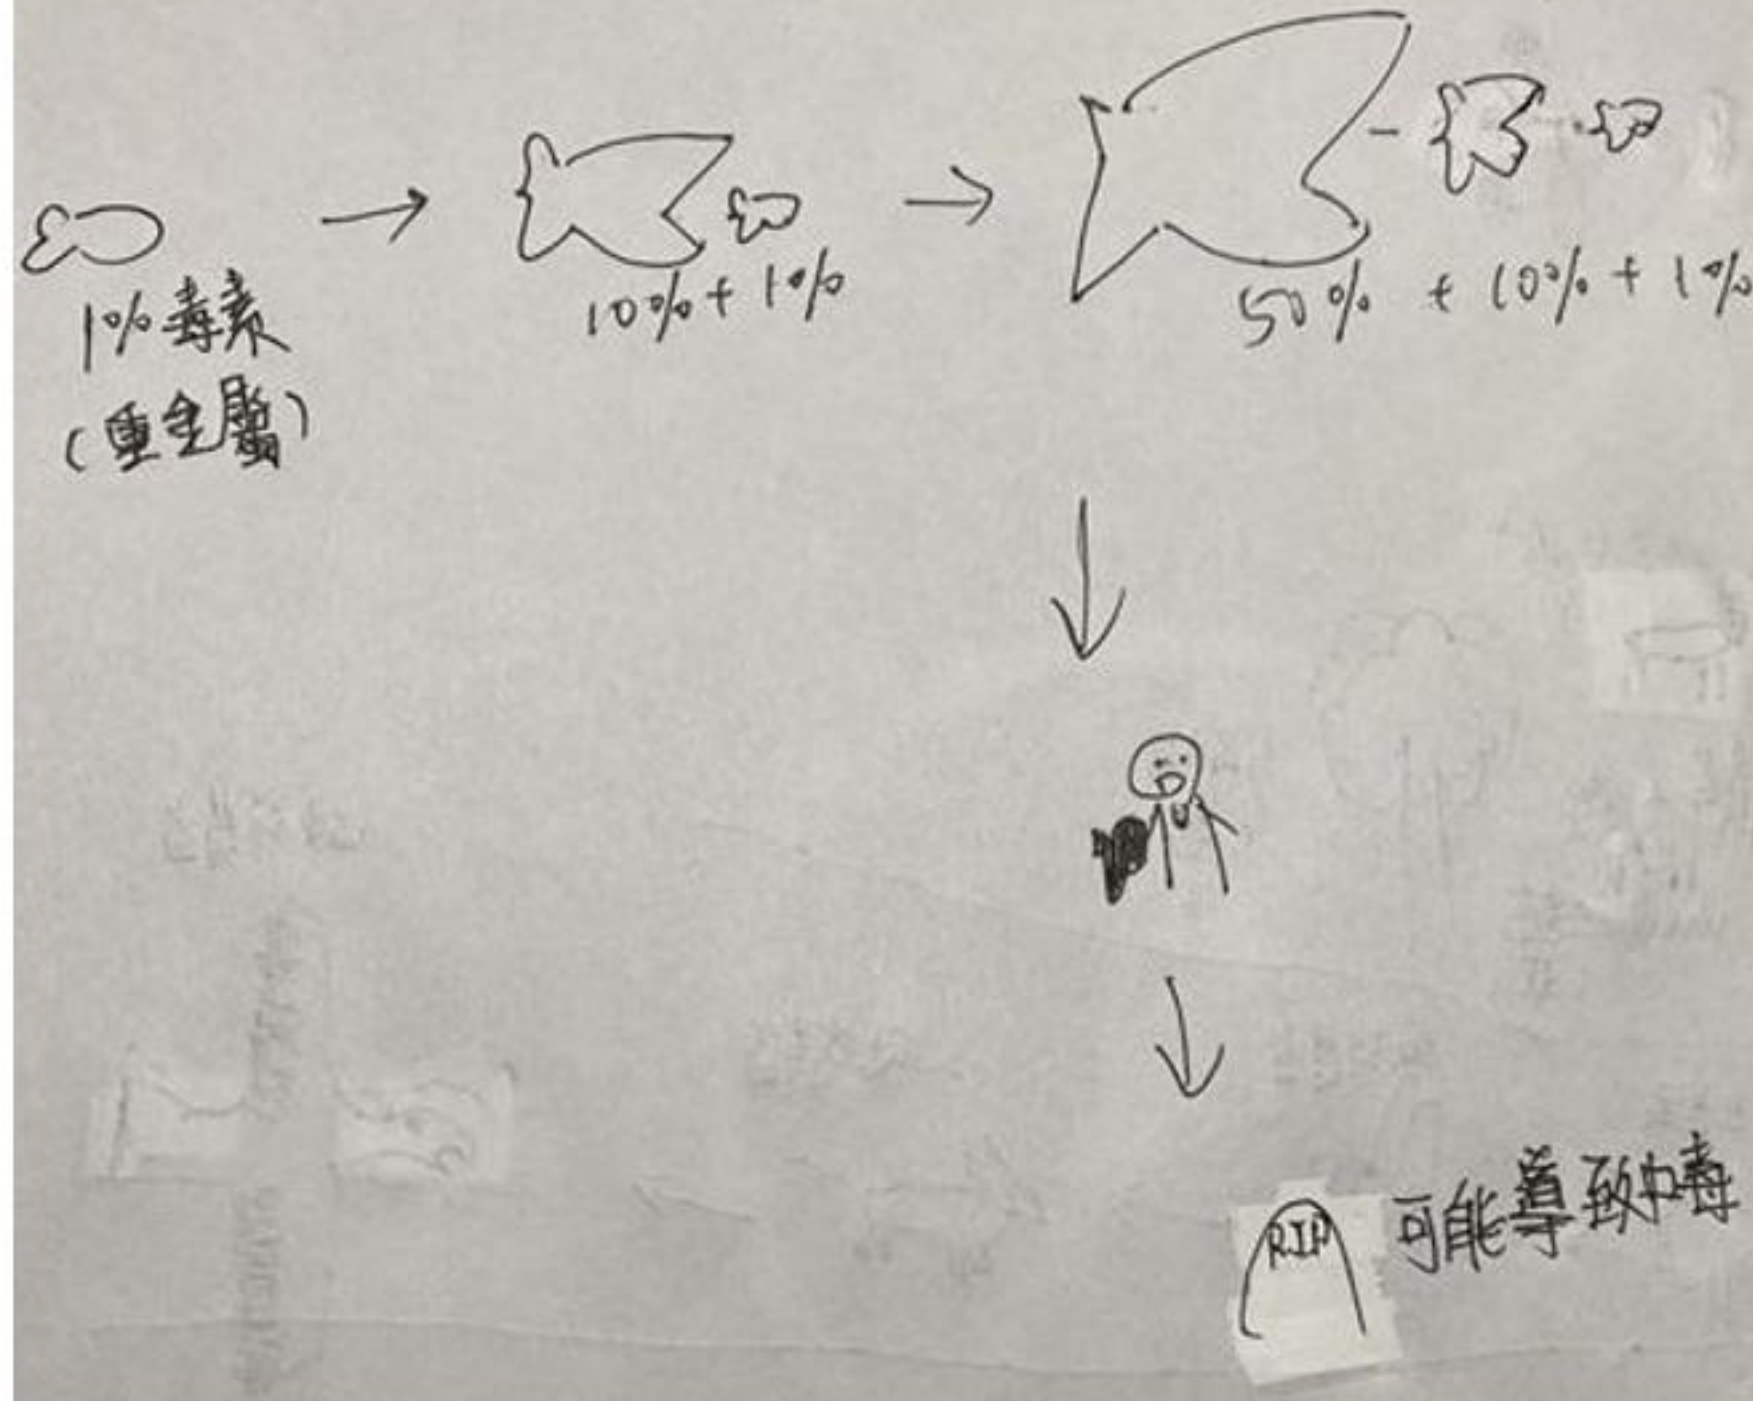 1%毒素
(重金屬)
10%+1%
50%+10%+1%
R.I.P
可能導致中毒